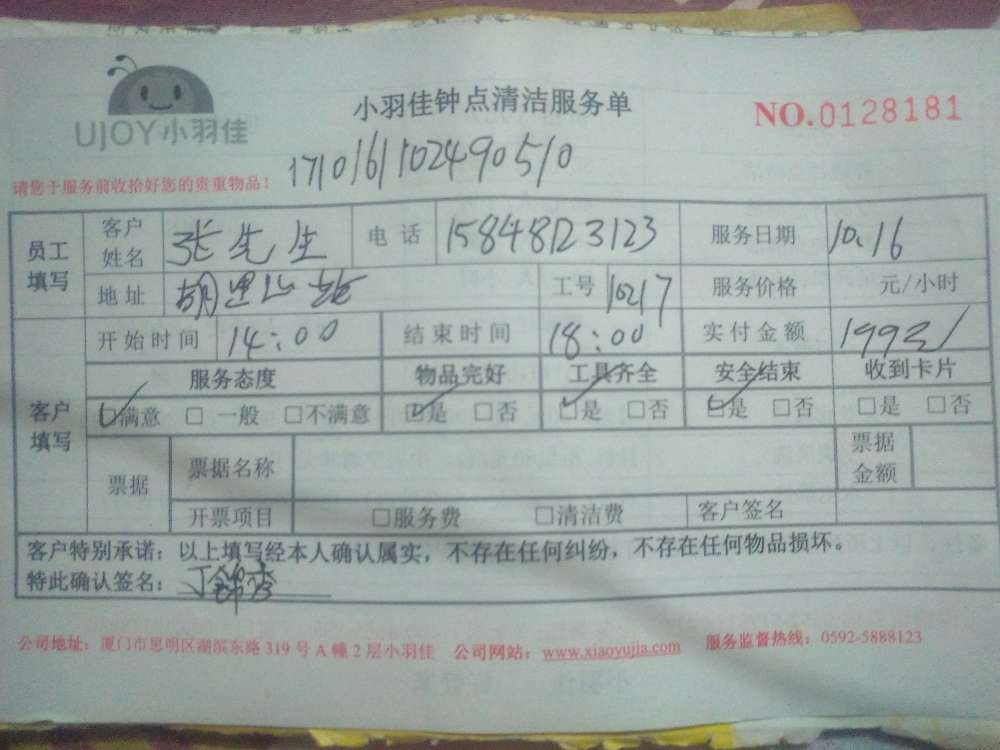 UJOY小羽佳
小羽佳钟点清洁服务单
NO.0128181
请您于服务前收拾好您的贵重物品！
1710161102490510
员工填写 客户姓名 张先生 电话 15848123123 服务日期 10.16
地址 胡里山 工号 10217 服务价格 元/小时
客户填写 开始时间 14:00 结束时间 18:00 实付金额 199元
服务态度 物品完好 工具齐全 安全结束 收到卡片
☑满意 □一般 □不满意 ☑是 □否 ☑是 □否 ☑是 □否 □是 □否
票据 票据名称 票据金额
开票项目 □服务费 □清洁费 客户签名
客户特别承诺：以上填写经本人确认属实，不存在任何纠纷，不存在任何物品损坏。
特此确认签名：丁锦杏
公司地址：厦门市思明区湖滨东路319号A幢2层小羽佳 公司网站：www.xiaoyujia.com 服务监督热线：0592-5888123